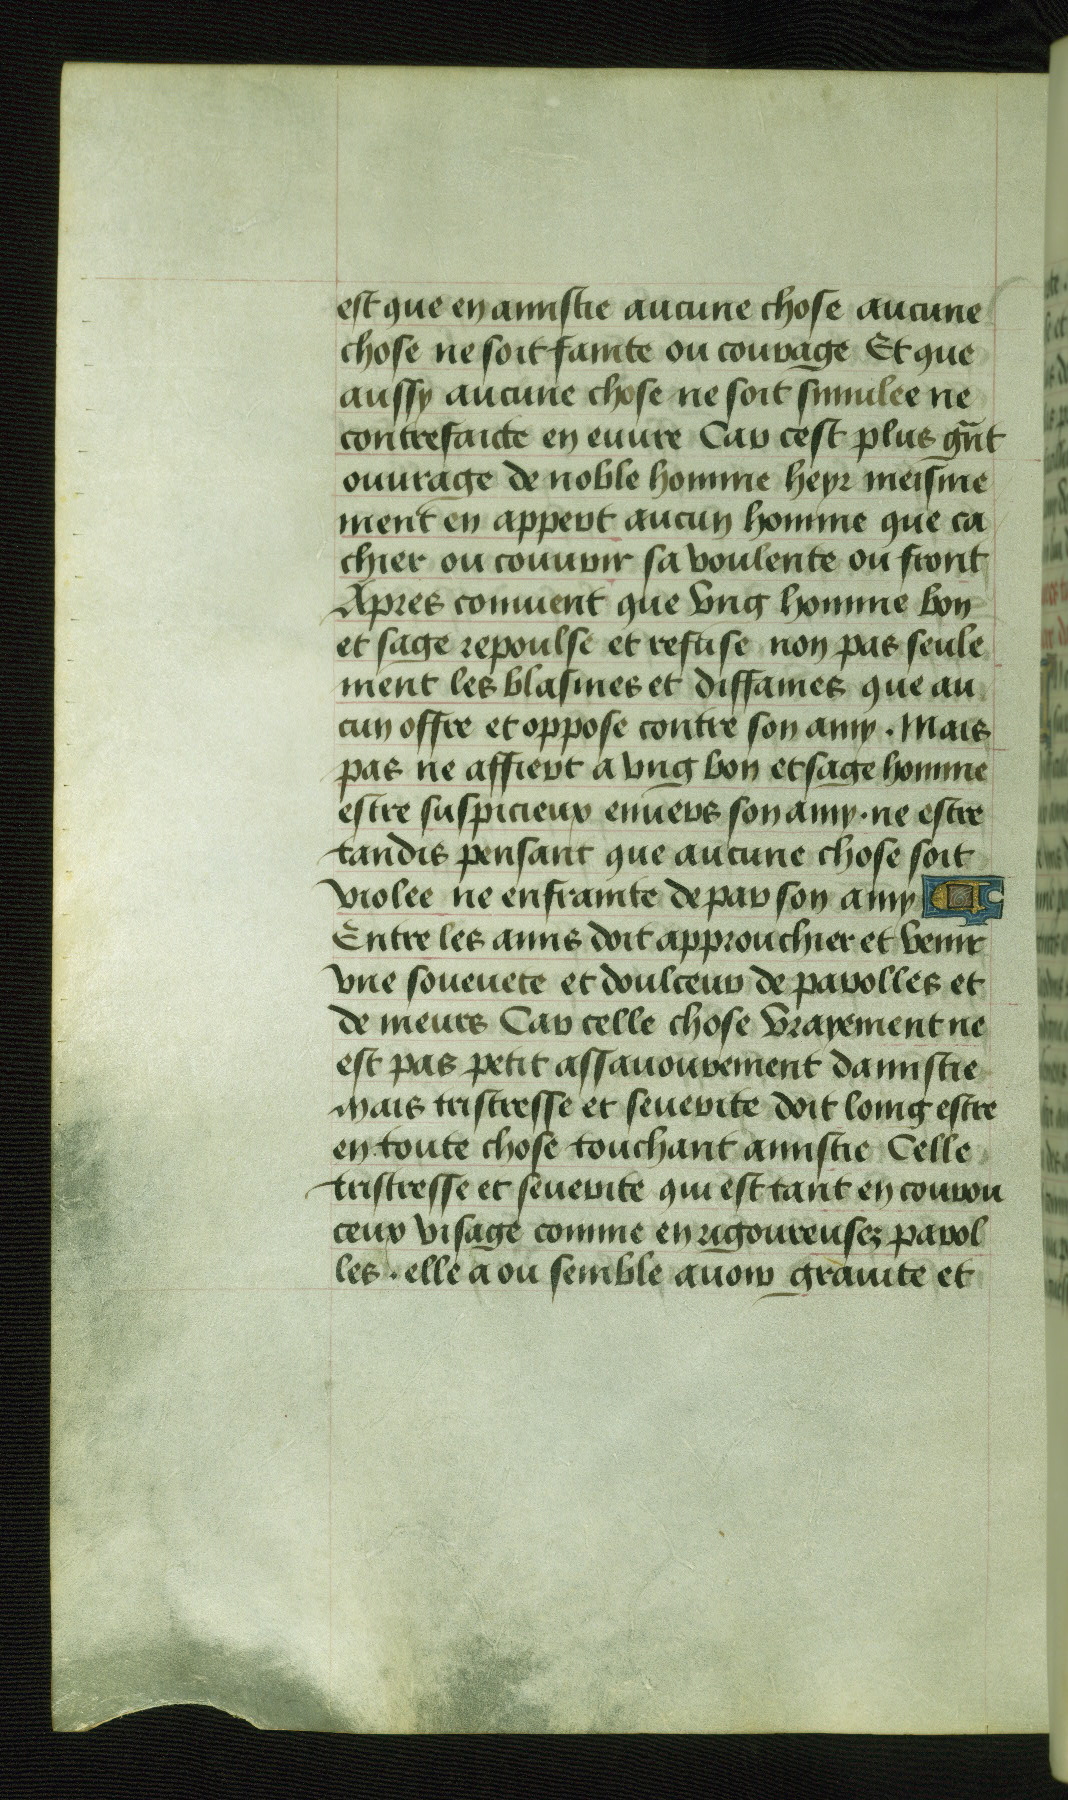 est que en amistie aucune chose aucune
chose ne soit fainte ou courage Et que
aussy aucune chose ne soit simulee ne
contrefaicte en euure Car cest plus gñt
ouurage de noble homme heyr meisme
ment en appert aucun homme que ca
chier ou couurir sa voulente ou front
Apres conuient que vng homme bon
et sage repoulse et refuse non pas seule
ment les blasmes et diffames que au
cun offre et oppose contre son amy . Mais
pas ne affiert a vng bon et sage homme
estre suspicieux enuers son amy . ne estre
tandis pensant que aucune chose soit
violee ne enfrainte de par son amy
Entre les amis doit approuchier et venir
vne soueuete et doulceur de parolles et
de meurs Car celle chose vrayement ne
est pas petit assauourement damistie
Mais tristresse et seuerite doit loing estre
en toute chose touchant amistie Celle
tristresse et seuerite qui est tant en courou
ceux visage comme en rigoureusez parol
les . elle a ou semble auoir grauite et